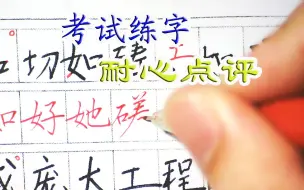 考试练字
切如
耐心点评
如好她
庞大工程